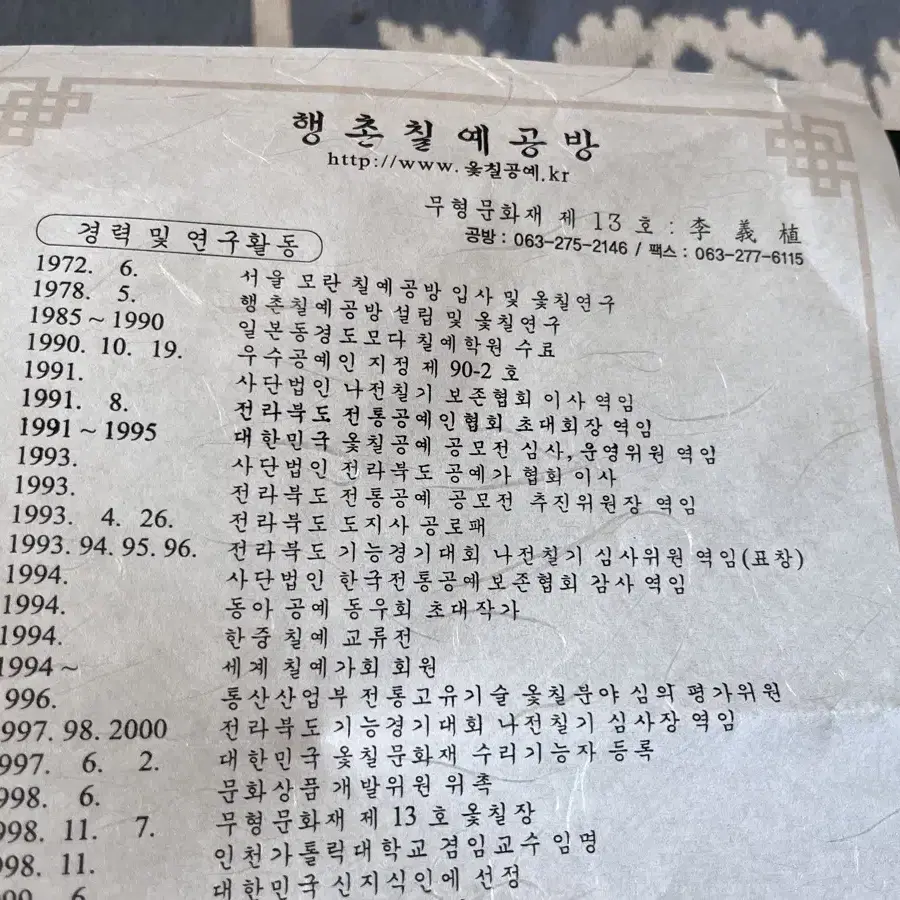 행촌칠예공방
http://www.옻칠공예.kr
무형문화재 제 13 호 : 李 義 植
공방 : 063-275-2146 / 팩스 : 063-277-6115
경력 및 연구활동
1972. 6. 서울 모란 칠예공방 입사 및 옻칠연구
1978. 5. 행촌칠예공방 설립 및 옻칠연구
1985 ~ 1990 일본동경도모다 칠예학원 수료
1990. 10. 19. 우수공예인 지정 제 90-2 호
1991. 사단법인 나전칠기 보존협회 이사 역임
1991. 8. 전라북도 전통공예인협회 초대회장 역임
1991 ~ 1995 대한민국 옻칠공예 공모전 심사, 운영위원 역임
1993. 사단법인 전라북도 공예가 협회 이사
1993. 전라북도 전통공예 공모전 추진위원장 역임
1993. 4. 26. 전라북도 도지사 공로패
1993. 94. 95. 96. 전라북도 기능경기대회 나전칠기 심사위원 역임(표창)
1994. 사단법인 한국전통공예보존협회 감사 역임
1994. 동아 공예 동우회 초대작가
1994. 한중 칠예 교류전
1994 ~ 세계 칠예가회 회원
996. 통산산업부 전통고유기술 옻칠분야 심의 평가위원
997. 98. 2000 전라북도 기능경기대회 나전칠기 심사장 역임
997. 6. 2. 대한민국 옻칠문화재 수리기능자 등록
998. 6. 문화상품개발위원 위촉
998. 11. 7. 무형문화재 제 13 호 옻칠장
98. 11. 인천가톨릭대학교 겸임교수 임명
6. 대한민국 신지식인에 선정